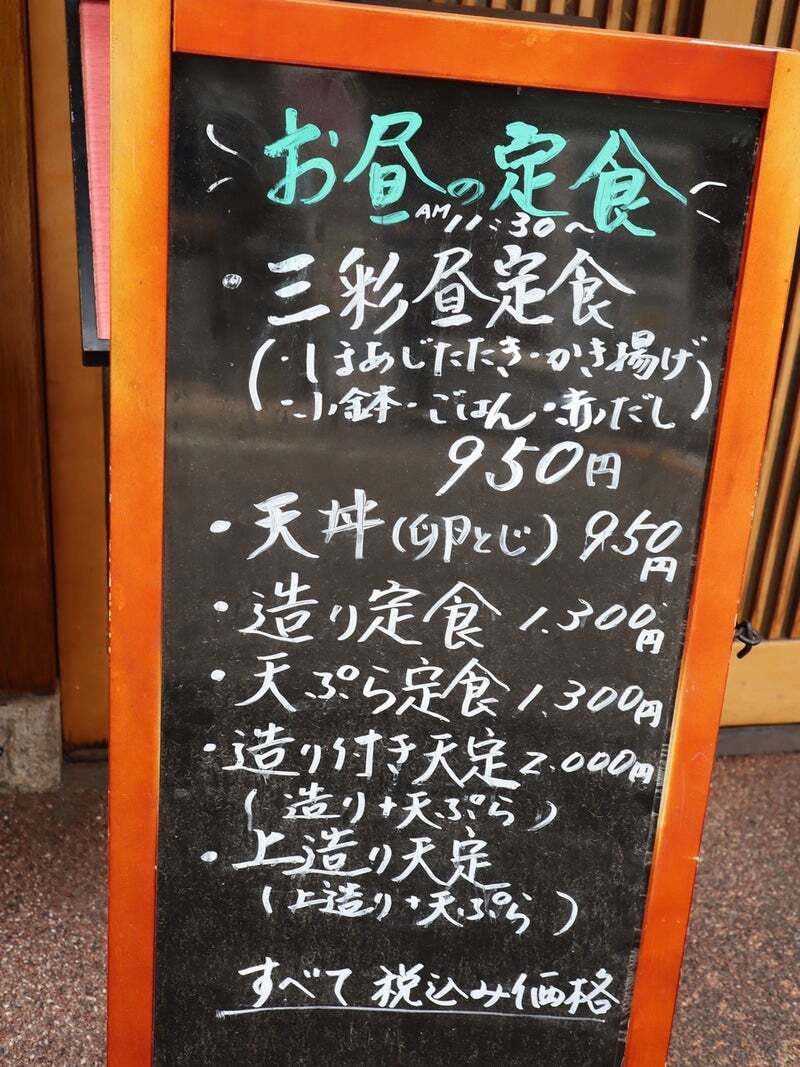 お昼の定食
AM 11:30〜
・三彩昼定食
(・しまあじたたき・かき揚げ
・小鉢・ごはん・赤だし)
950円
・天丼(卵とじ) 950円
・造り定食 1.300円
・天ぷら定食 1.300円
・造り付き天定 2.000円
(造り+天ぷら)
・上造り天定
(上造り+天ぷら)
すべて税込み価格